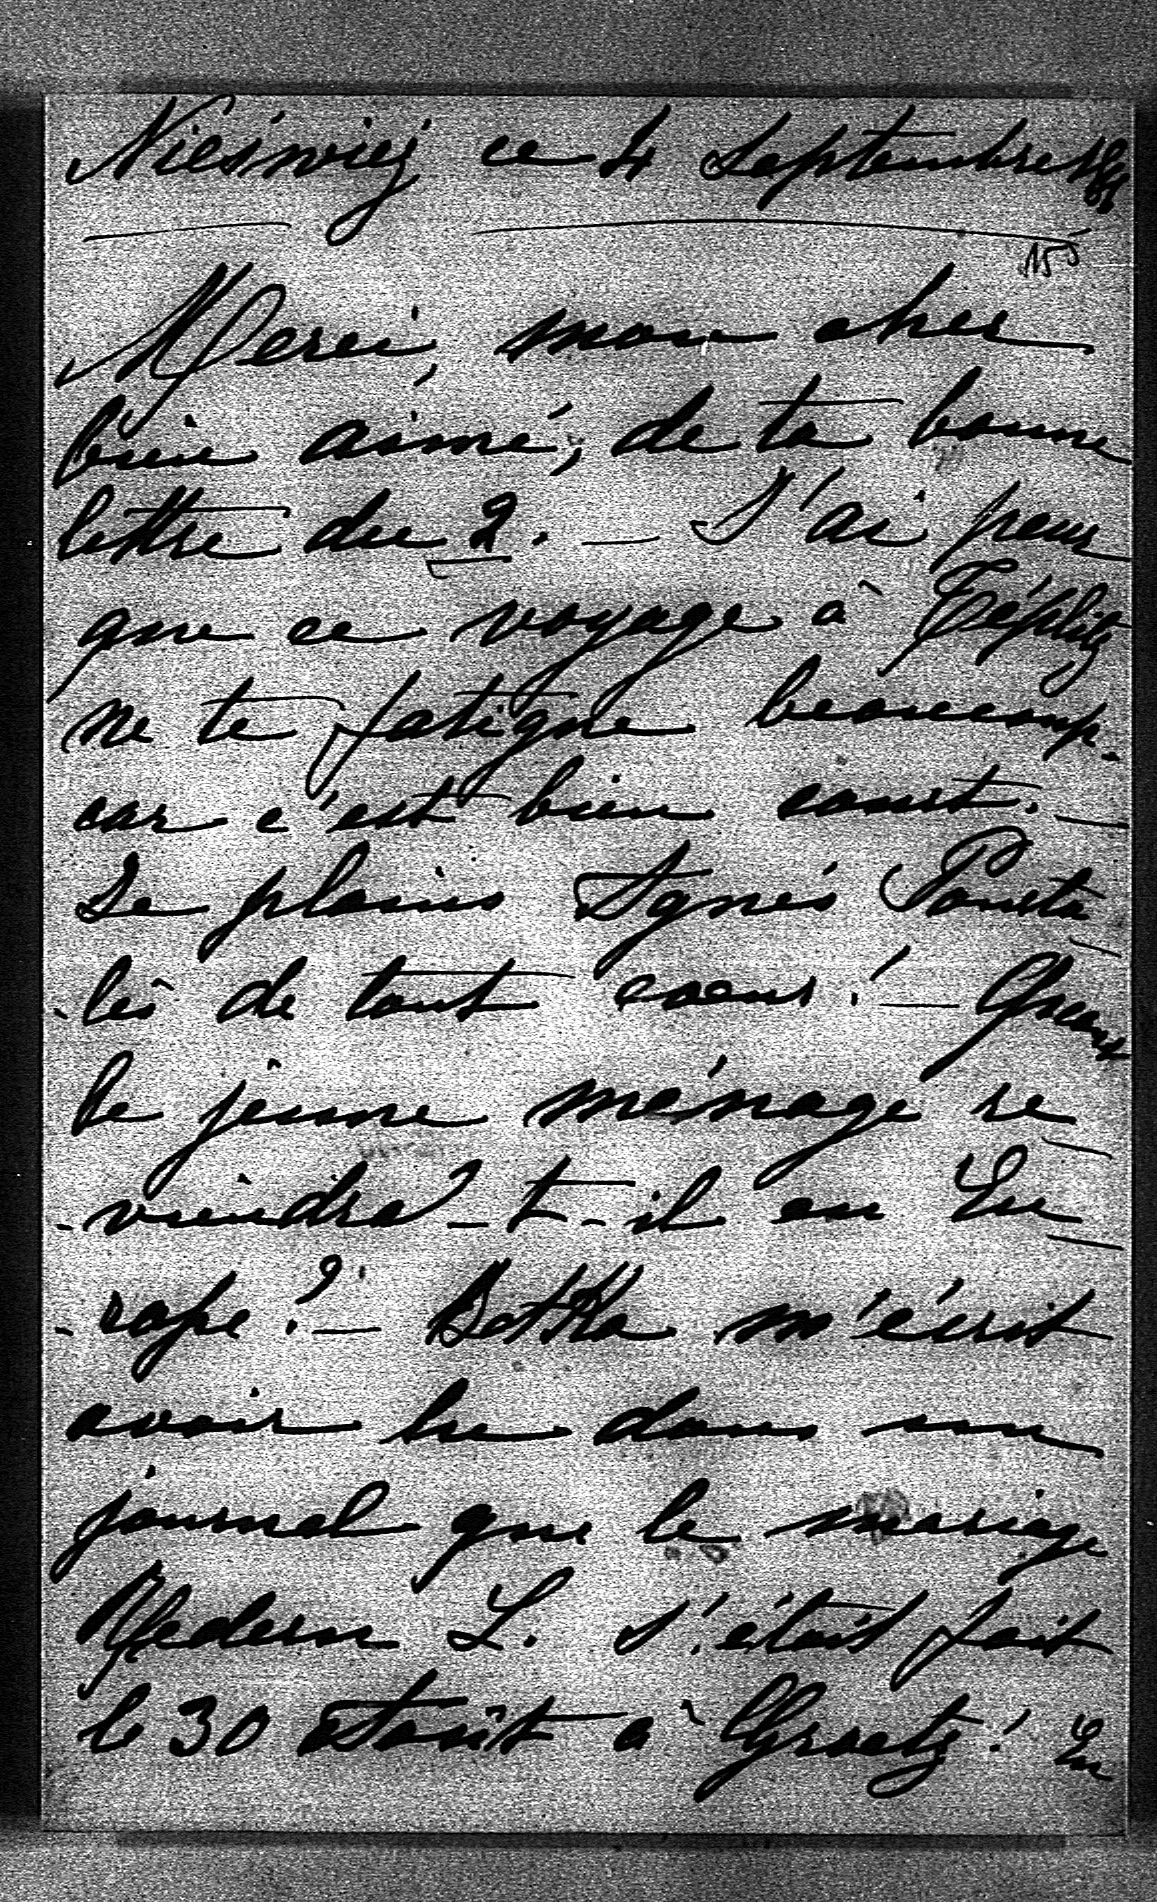 Nieśwież ce 4 Septembre
15
Merci, mon cher
bien aimé, de ta bonne
lettre du 2. — J'ai peur
que ce voyage à Téplitz
ne te fatigue beaucoup.
car c'est bien court. —
Je plains Agnès Pourta
-lès de tout coeur! — Quand
le jeune ménage re
-viendra-t-il en Eu
-rope? — Betka m'écrit
avoir lu dans un
journal que le mariage
Redern L. s'était fait
le 30 Août à Graetz! En